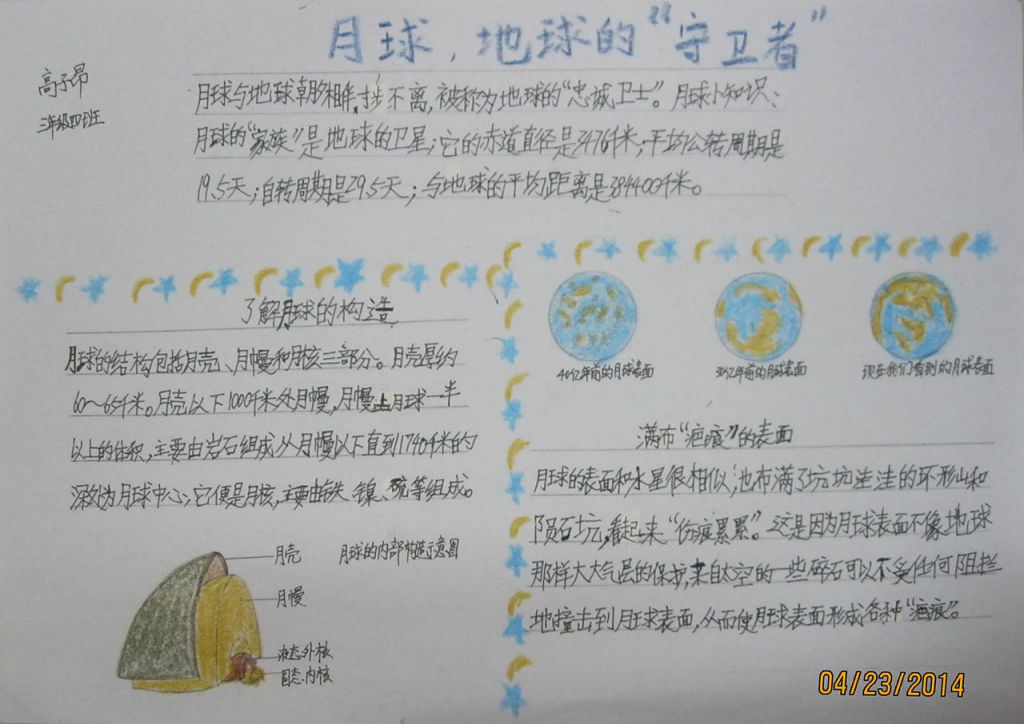 月球，地球的“守卫者”
高子昂
三年级四班
月球与地球朝夕相伴，寸步不离，被称为地球的“忠诚卫士”。月球小知识：
月球的“家族”是地球的卫星；它的赤道直径是3476千米；平均公转周期是
19.5天；自转周期是29.5天；与地球的平均距离是384400千米。
了解月球的构造
月球的结构包括月壳、月幔和月核三部分。月壳厚约
60～65千米。月壳以下1000千米为月幔，月幔占月球一半
以上的体积，主要由岩石组成。从月幔以下直到1740千米的
深处为月球中心，它便是月核，主要由铁、镍、硫等组成。
月壳
月球的内部构造示意图
月幔
液态外核
固态内核
40亿年前的月球表面
30亿年前的月球表面
现在我们看到的月球表面
满布“疤痕”的表面
月球的表面和水星很相似，也布满了坑坑洼洼的环形山和
陨石坑，看起来“伤痕累累”。这是因为月球表面不像地球
那样大大气层的保护，来自太空的一些碎石可以不受任何阻拦
地撞击到月球表面，从而使月球表面形成各种“疤痕”。
04/23/2014